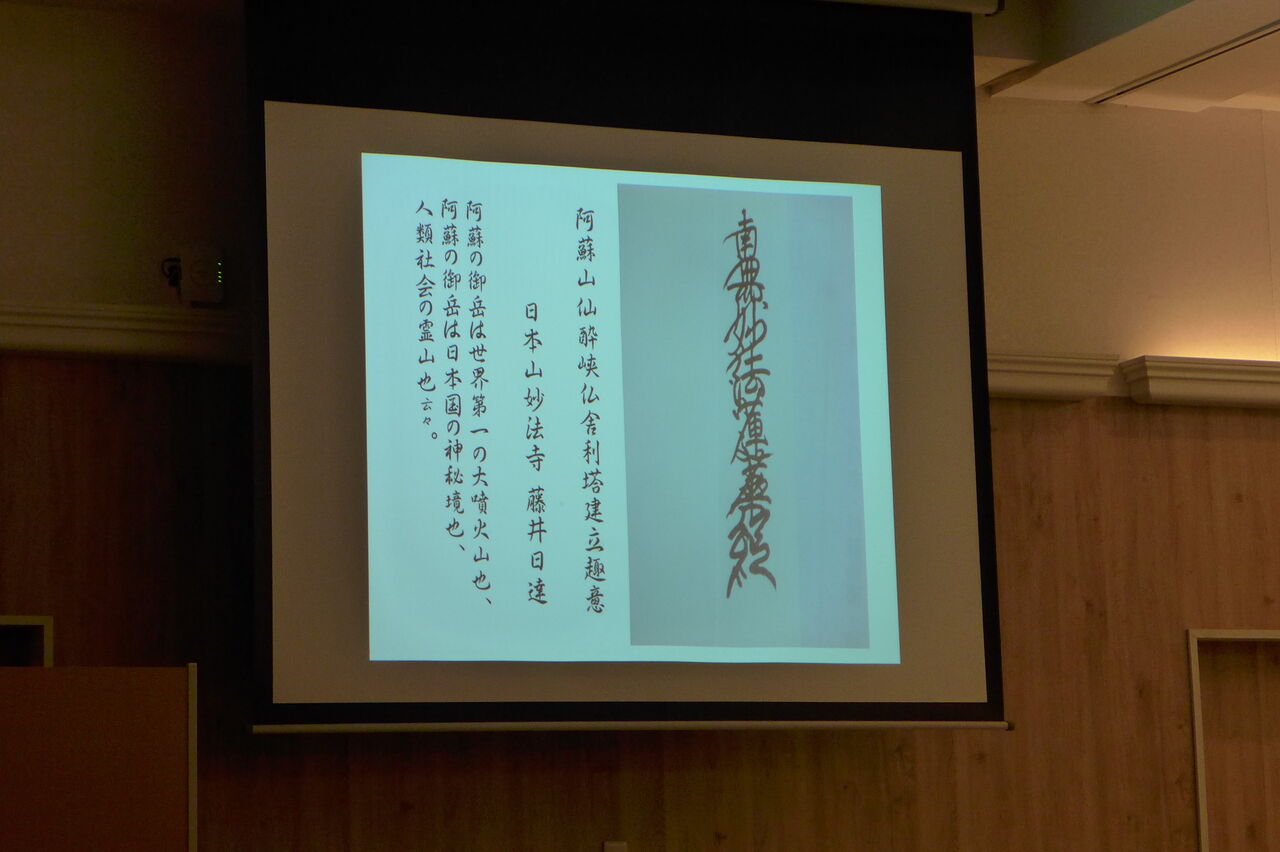 南無妙法蓮華経
阿蘇山仙酔峡仏舎利塔建立趣意
日本山妙法寺 藤井日達
阿蘇の御岳は世界第一の大噴火山也、
阿蘇の御岳は日本国の神秘境也、
人類社会の霊山也云々。